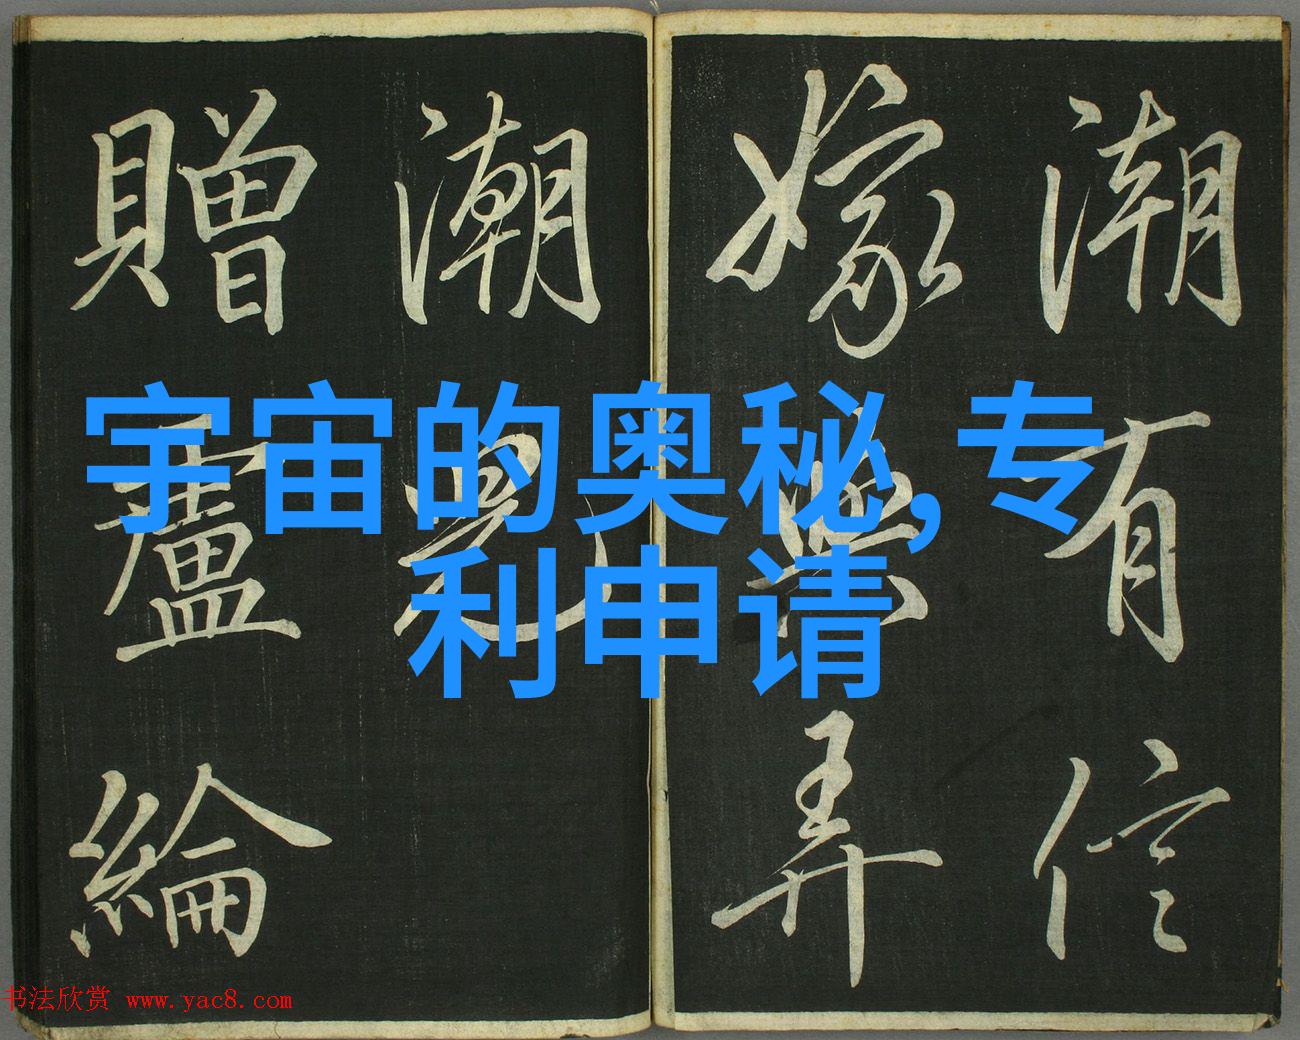 宇宙的奥秘,专
利申请
潮有信
嫁與弄
潮兒
贈盧綸
书法欣赏 www.yac8.com